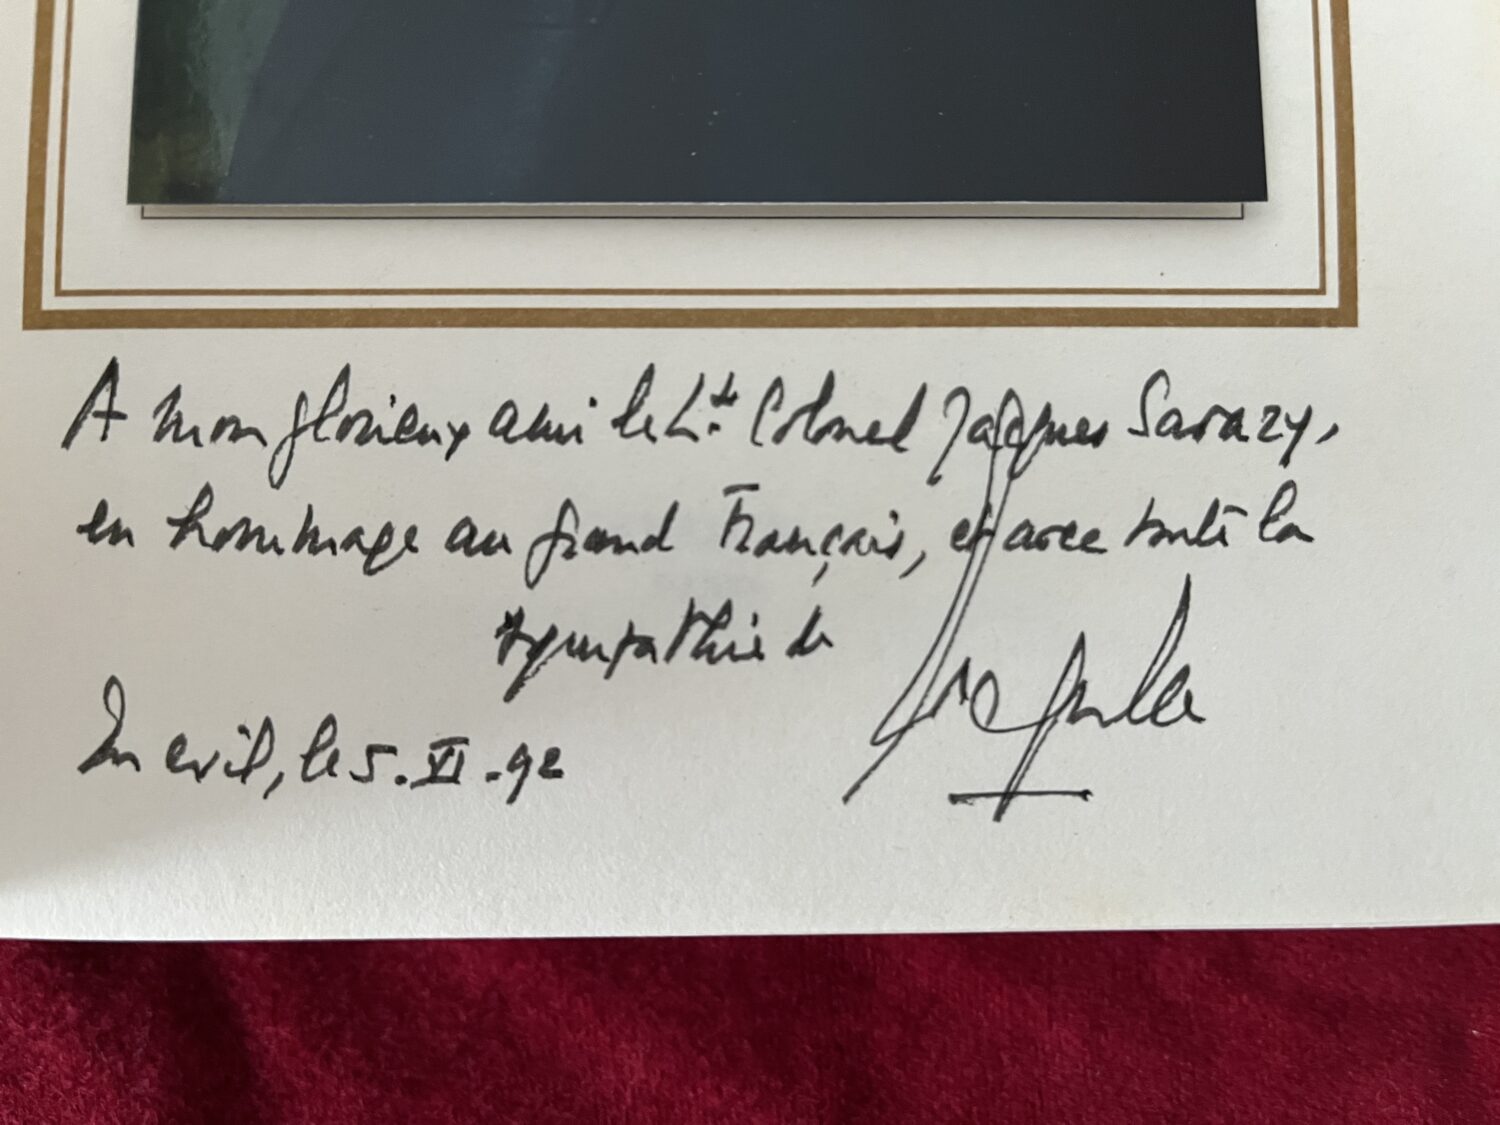 A mon glorieux ami le Lt. Colonel Jacques Sarazy,
en hommage au grand Français, et avec toute la
sympathie de
En exil, le 5.VI.92